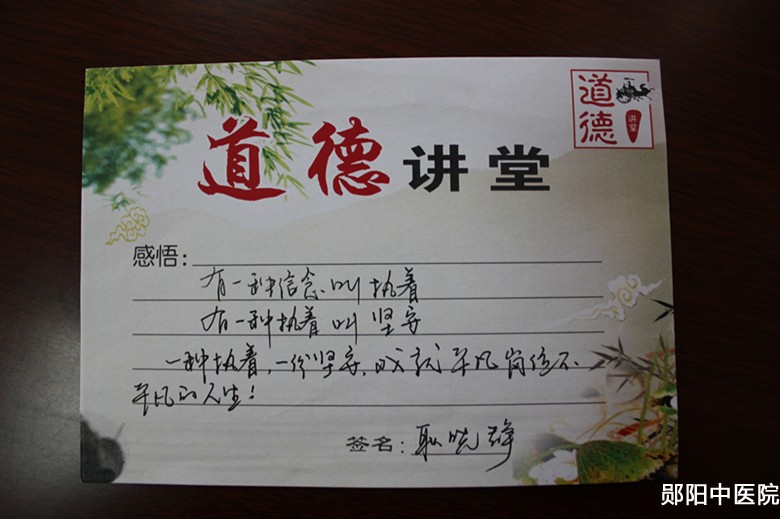 道德
讲堂
道德讲堂
感悟：
有一种信念叫执着
有一种执着叫坚守
一种执着，一份坚守，成就平凡岗位不
平凡的人生！
签名：耿晓静
郧阳中医院